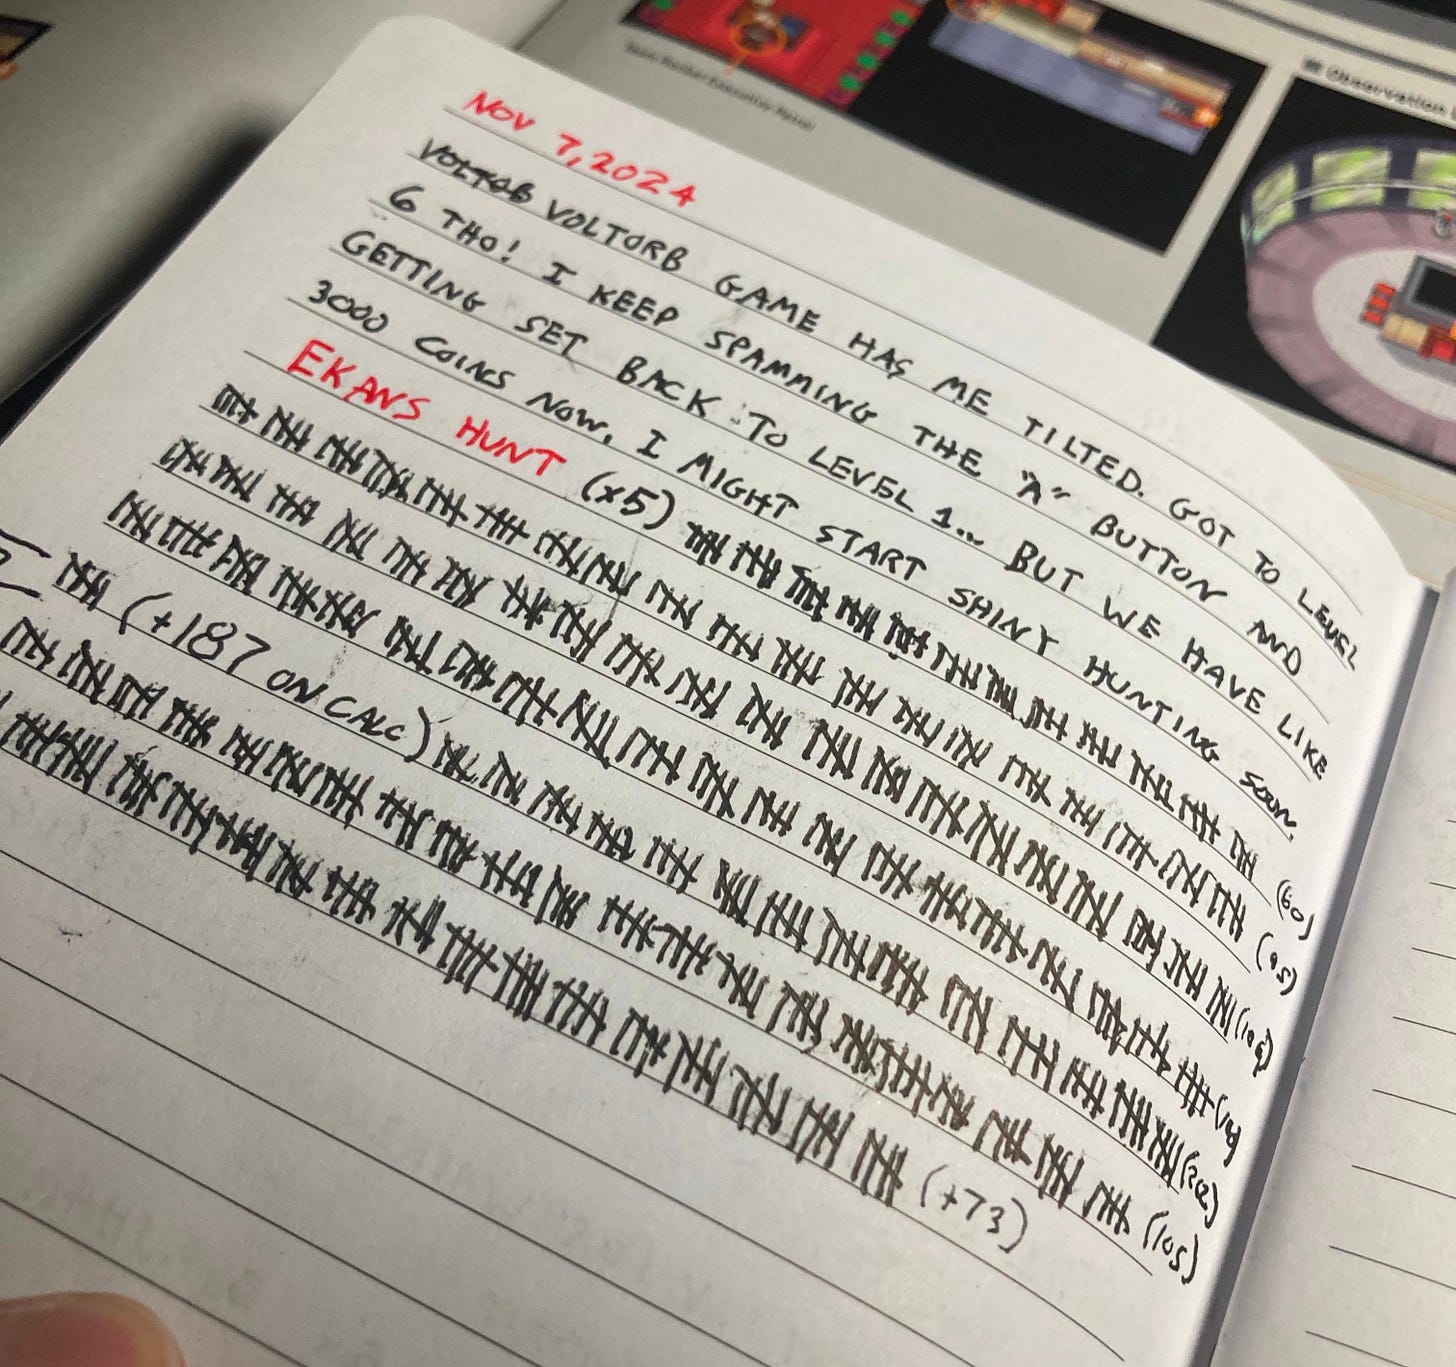 Nov 7, 2024
VOLTOB VOLTORB GAME HAS ME TILTED. GOT TO LEVEL
6 THO! I KEEP SPAMMING THE "A" BUTTON AND
GETTING SET BACK TO LEVEL 1... BUT WE HAVE LIKE
3000 COINS NOW, I MIGHT START SHINY HUNTING SOON.
EKANS HUNT (x5) (60)
(95)
(+187 ON CALC)
(105)
(+73)
Team Rocket Executive Petrel
Observation